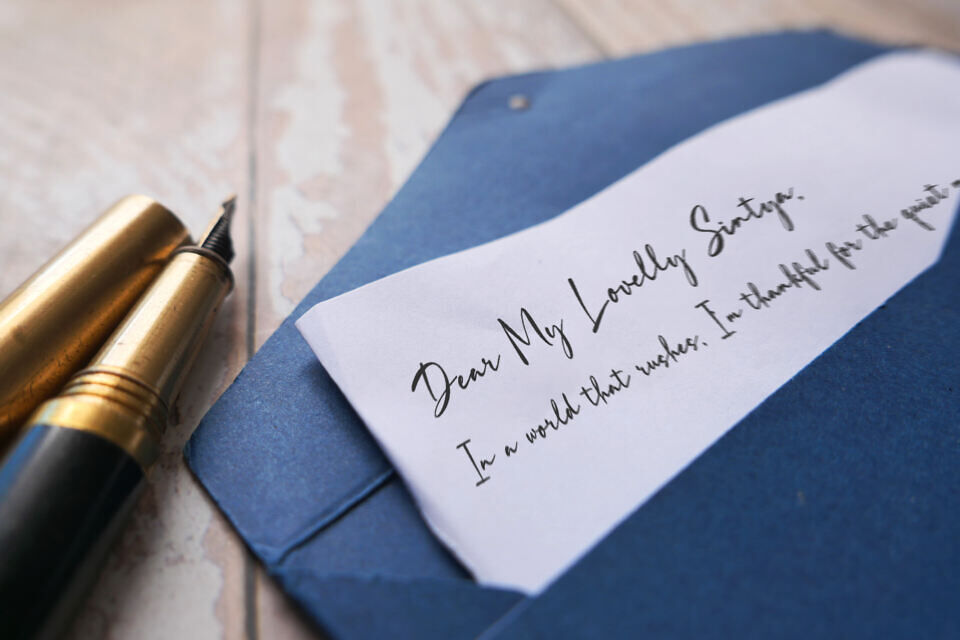 Dear My Lovelly Sintya,
In a world that rushes, Im thankful for the quiet -